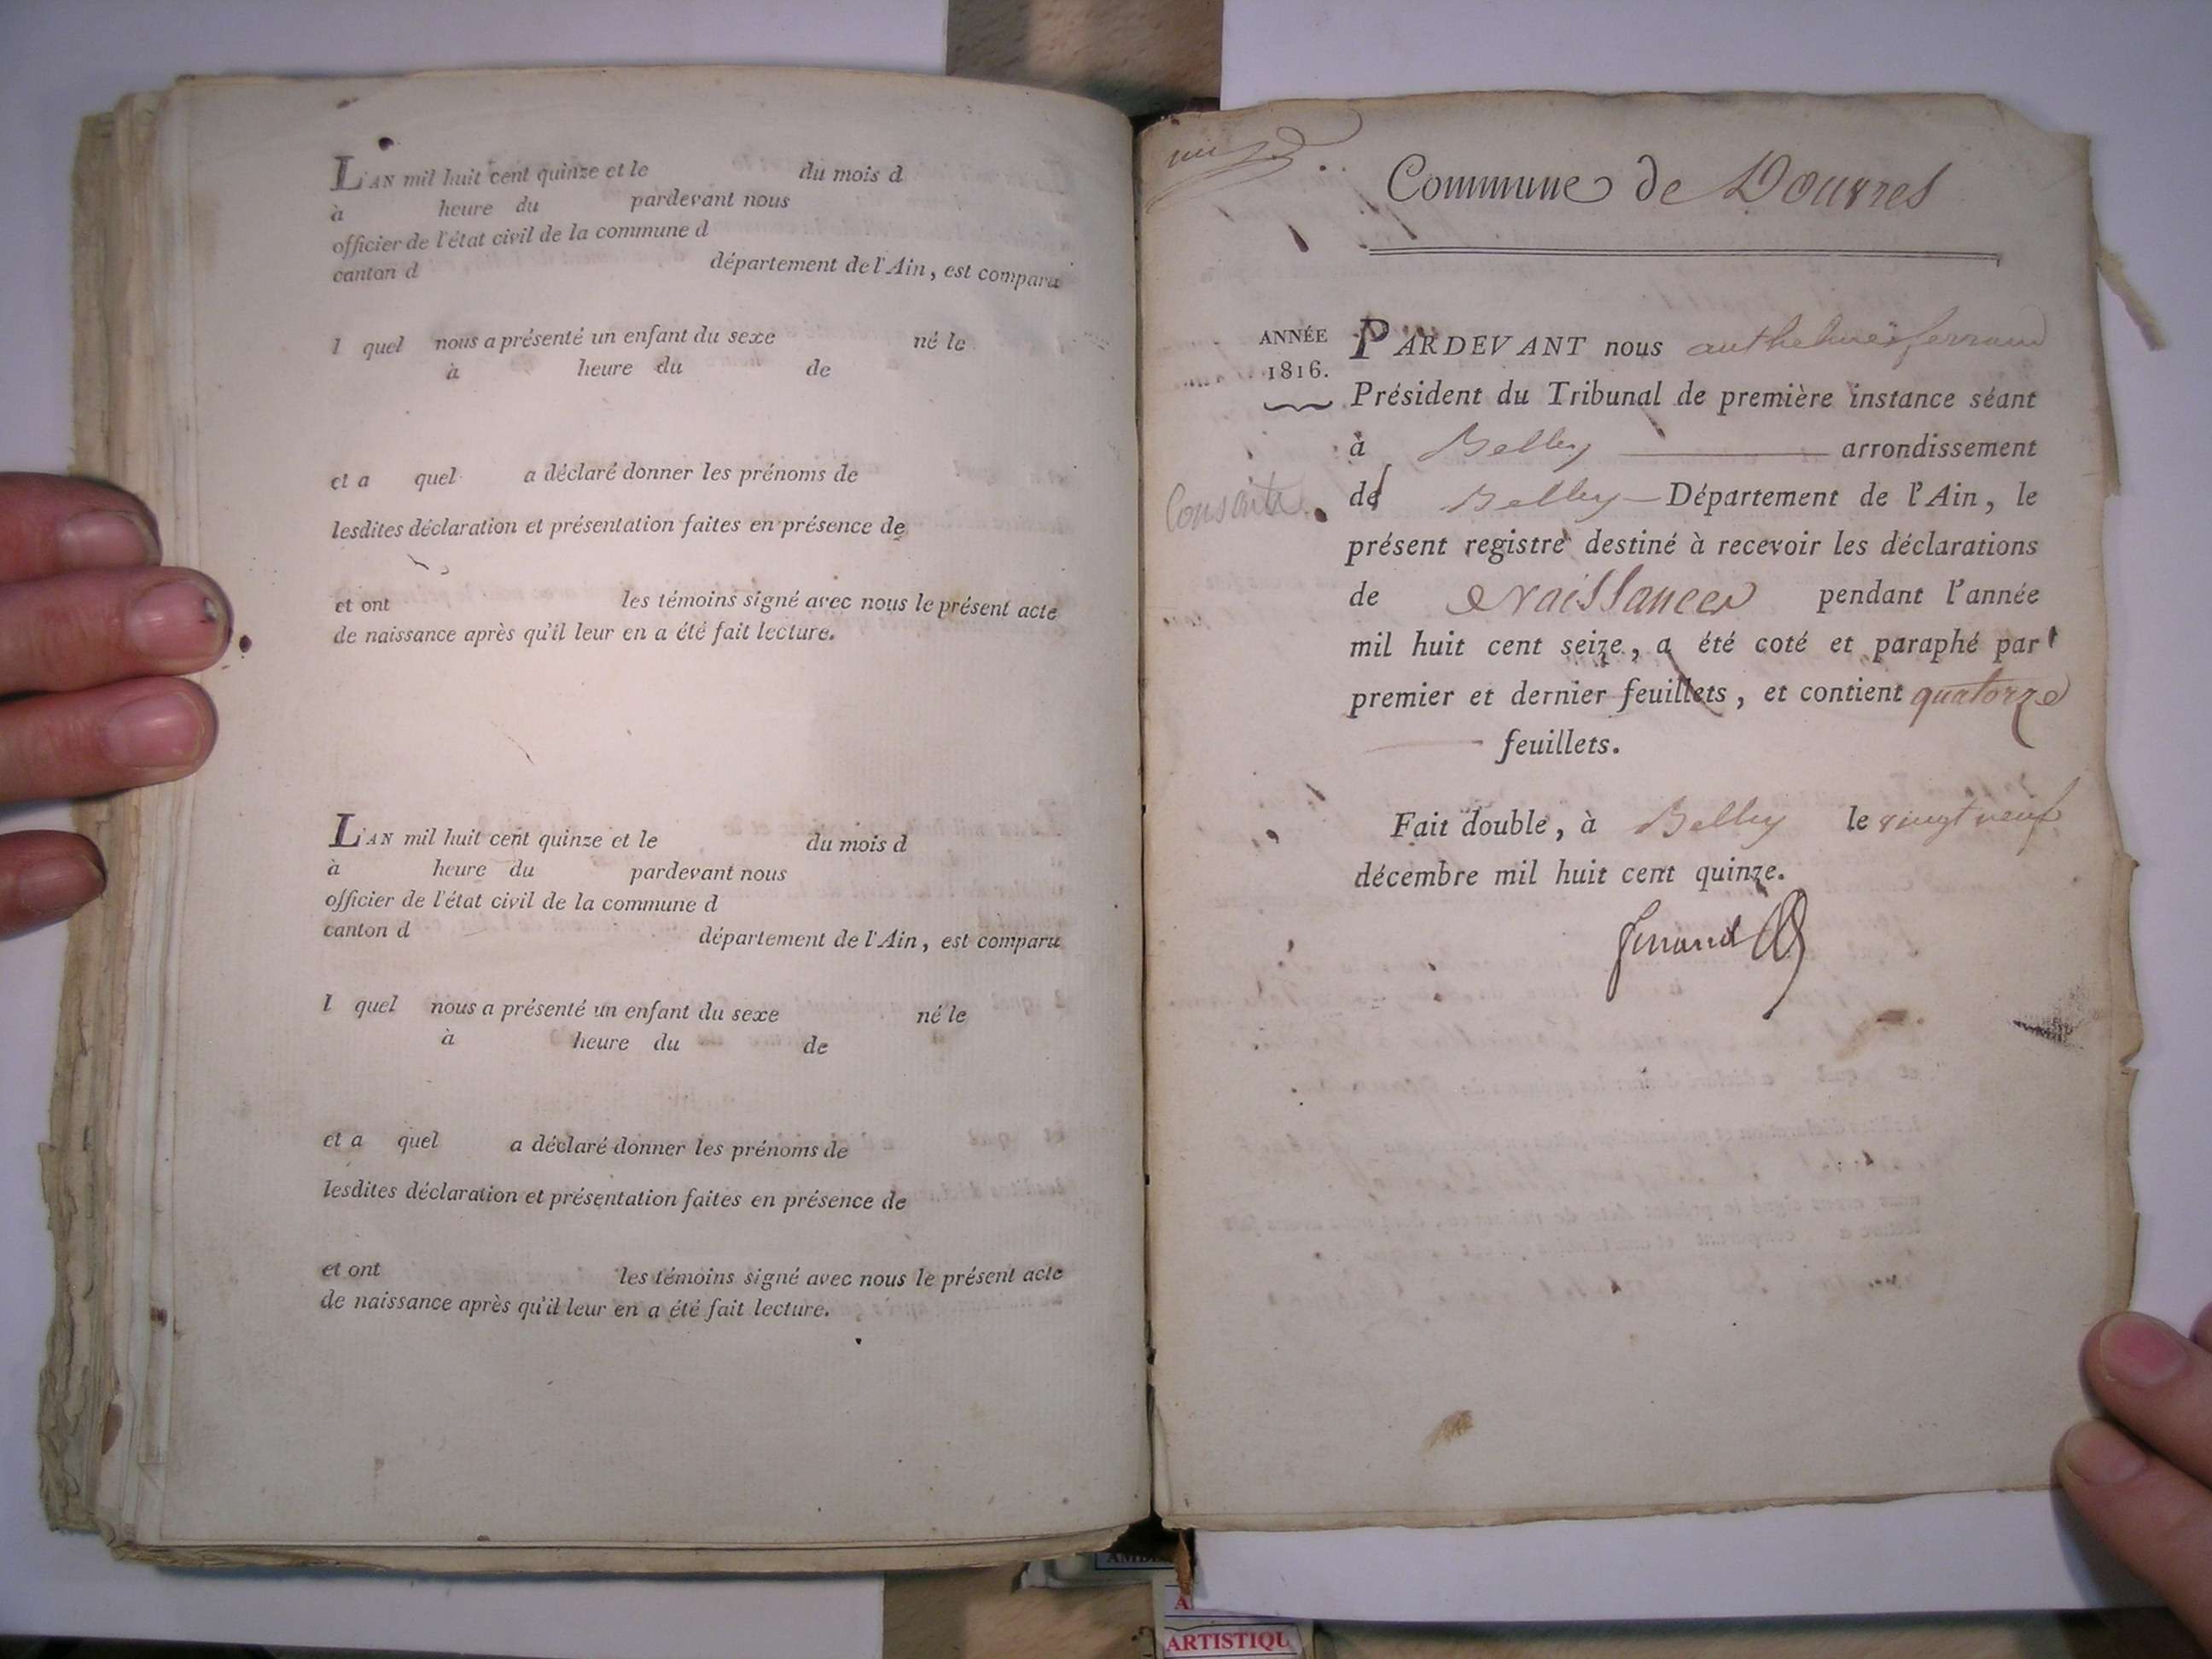 L'AN mil huit cent quinze et le du mois d
à heure du pardevant nous
officier de l'état civil de la commune d
canton d département de l'Ain, est comparu
l quel nous a présenté un enfant du sexe né le
à heure du de
et a quel a déclaré donner les prénoms de
lesdites déclaration et présentation faites en présence de
et ont les témoins signé avec nous le présent acte
de naissance après qu'il leur en a été fait lecture.
L'AN mil huit cent quinze et le du mois d
à heure du pardevant nous
officier de l'état civil de la commune d
canton d département de l'Ain, est comparu
l quel nous a présenté un enfant du sexe né le
à heure du de
et a quel a déclaré donner les prénoms de
lesdites déclaration et présentation faites en présence de
et ont les témoins signé avec nous le présent acte
de naissance après qu'il leur en a été fait lecture.
Commune de Douvres
ANNÉE
1816.
PARDEVANT nous anthelme ferrand
Président du Tribunal de première instance séant
à Belley arrondissement
de Belley Département de l'Ain, le
présent registre destiné à recevoir les déclarations
de Naissances pendant l'année
mil huit cent seize, a été coté et paraphé par
premier et dernier feuillets, et contient quatorze
feuillets.
Fait double, à Belley le vingt neuf
décembre mil huit cent quinze.
ferrand
ARTISTIQU